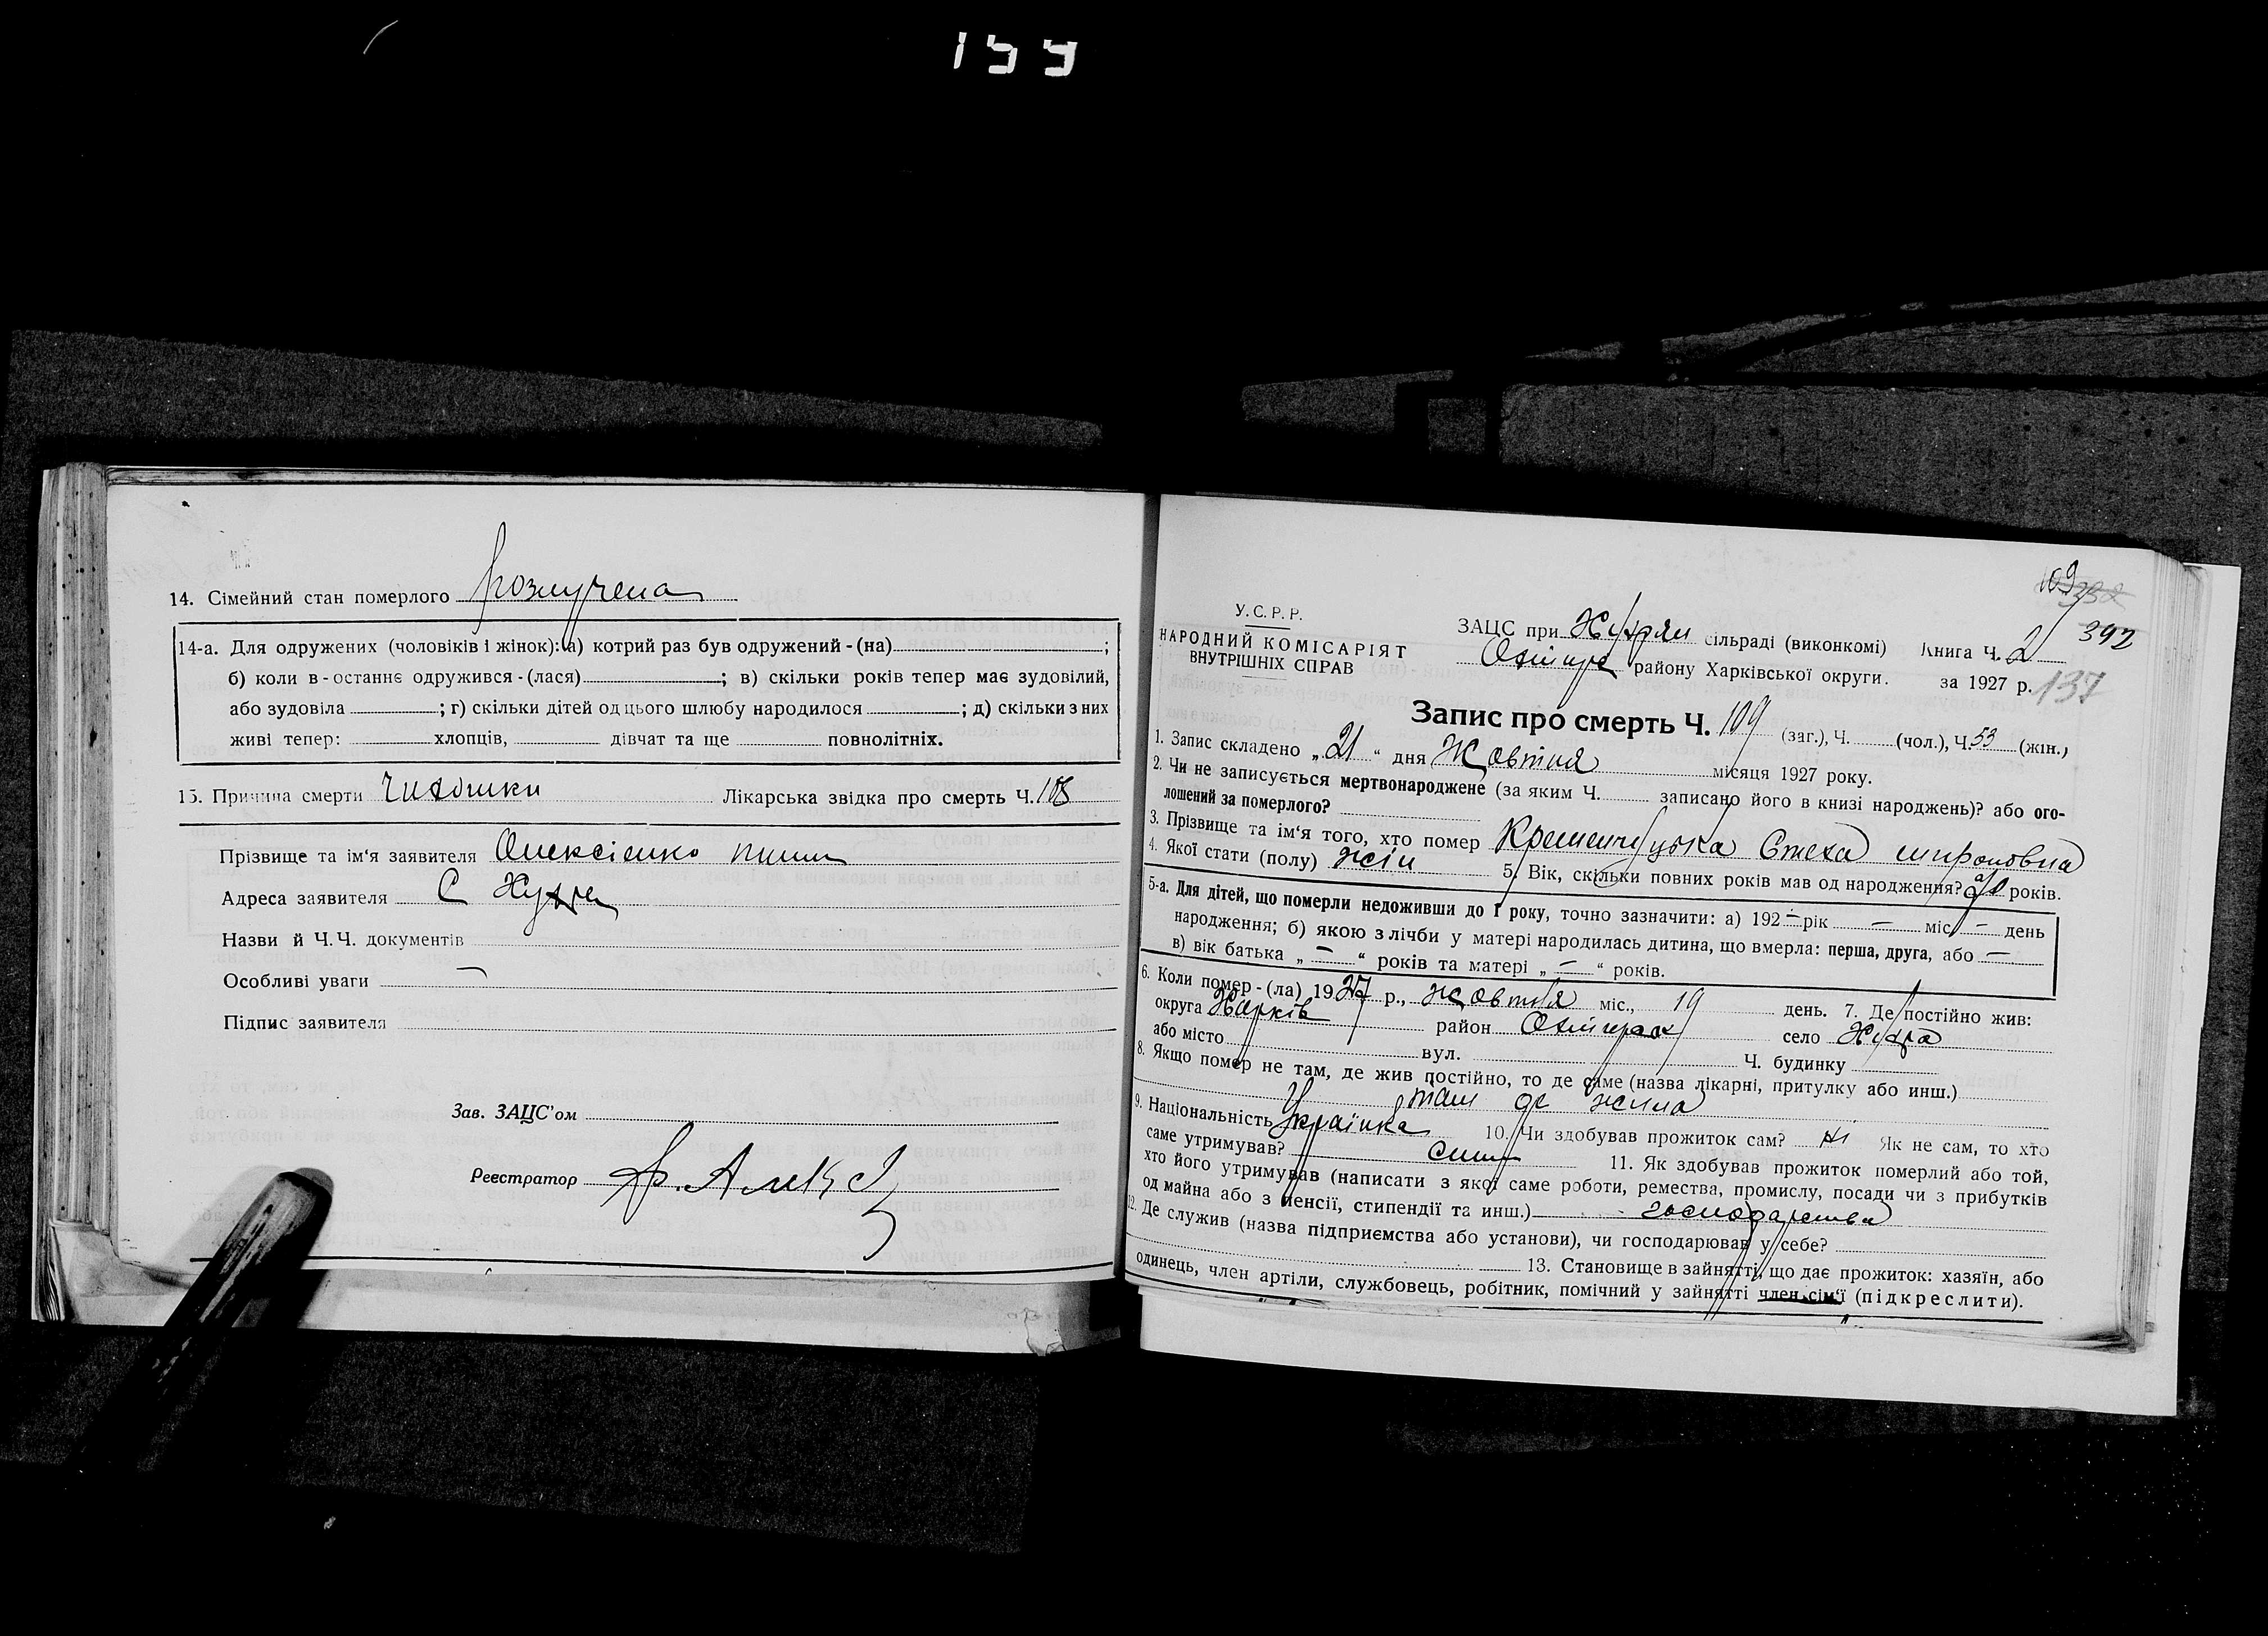 159
14. Сімейний стан померлого розлучена
14-а. Для одружених (чоловіків і жінок): а) котрий раз був одружений-(на) ;
б) коли в-останнє одружився-(лася) ; в) скільки років тепер має зудовілий,
або зудовіла ; г) скільки дітей од цього шлюбу народилося ; д) скільки з них
живі тепер: хлопців, дівчат та ще повнолітніх.
15. Причина смерти Лікарська звідка про смерть Ч. 108
Прізвище та ім'я заявителя Олексієнко
Адреса заявителя С
Назви й Ч.Ч. документів
Особливі уваги —
Підпис заявителя
Зав. ЗАЦС'ом
Реєстратор
109
392
137
У.С.Р.Р.
НАРОДНИЙ КОМІСАРІЯТ
ВНУТРІШНІХ СПРАВ
ЗАЦС при сільраді (виконкомі) Книга Ч. 2
району Харківської округи. за 1927 р.
Запис про смерть Ч. 109 (заг.), Ч. (чол.), Ч. 53 (жін.)
1. Запис складено „21“ дня Жовтня місяця 1927 року.
2. Чи не записується мертвонароджене (за яким Ч. записано його в книзі народжень)? або ого-
лошений за померлого?
3. Прізвище та ім'я того, хто помер Кременчуцька Стеха мироновна
4. Якої стати (полу) жін 5. Вік, скільки повних років мав од народження? років.
5-а. Для дітей, що померли недоживши до 1 року, точно зазначити: а) 192 — рік — міс. — день
народження; б) якою з лічби у матері народилась дитина, що вмерла: перша, друга, або —
в) вік батька „—“ років та матері „—“ років.
6. Коли помер-(ла) 1927 р., жовтня міс., 19 день. 7. Де постійно жив:
округа Харків район село
або місто вул. Ч. будинку
8. Якщо помер не там, де жив постійно, то де саме (назва лікарні, притулку або инш.)
там де жила
9. Національність Українка 10. Чи здобував прожиток сам? ні Як не сам, то хто
саме утримував? 11. Як здобував прожиток померлий або той,
хто його утримував (написати з якої саме роботи, ремества, промислу, посади чи з прибутків
од майна або з пенсії, стипендії та инш.) господарства
12. Де служив (назва підприємства або установи), чи господарював у себе?
13. Становище в зайнятті, що дає прожиток: хазяїн, або
одинець, член артіли, службовець, робітник, помічний у зайнятті член сім'ї (підкреслити).